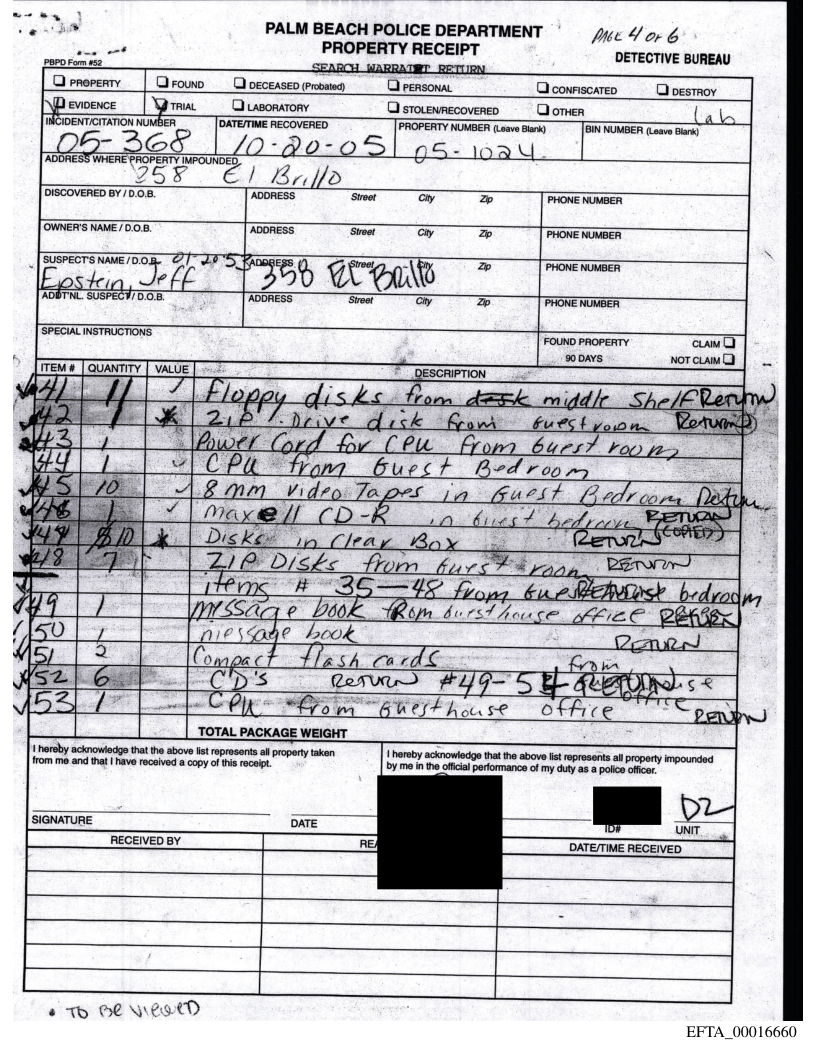 PALM BEACH POLICE DEPARTMENT
PROPERTY RECEIPT
PAGE 4 OF 6
DETECTIVE BUREAU
PBPD Form #52
SEARCH WARRANT RETURN
PROPERTY FOUND DECEASED (Probated) PERSONAL CONFISCATED DESTROY
EVIDENCE TRIAL LABORATORY STOLEN/RECOVERED OTHER lab
INCIDENT/CITATION NUMBER DATE/TIME RECOVERED PROPERTY NUMBER (Leave Blank) BIN NUMBER (Leave Blank)
05-368 10-20-05 05-1024
ADDRESS WHERE PROPERTY IMPOUNDED
358 El Brillo
DISCOVERED BY / D.O.B. ADDRESS Street City Zip PHONE NUMBER
OWNER'S NAME / D.O.B. ADDRESS Street City Zip PHONE NUMBER
SUSPECT'S NAME / D.O.B. 01-20-53 ADDRESS Street City Zip PHONE NUMBER
Epstein, Jeff 358 El Brillo
ADDT'NL. SUSPECT / D.O.B. ADDRESS Street City Zip PHONE NUMBER
SPECIAL INSTRUCTIONS
FOUND PROPERTY CLAIM
90 DAYS NOT CLAIM
ITEM # QUANTITY VALUE DESCRIPTION
41 11 Floppy disks from desk middle Shelf Return
42 1 * ZIP Drive disk from Guest room Return
43 1 Power Cord for CPU from Guest room
44 1 CPU from Guest Bedroom
45 10 8 mm video Tapes in Guest Bedroom Return
46 1 maxell CD-R in Guest bedroom RETURN
47 10 * Disks in Clear Box RETURN (COPIED)
48 7 ZIP Disks from Guest room RETURN
items # 35-48 from Guest bedroom
49 1 message book from Guesthouse office RETURN
50 1 message book RETURN
51 2 Compact flash cards from
52 6 CD'S RETURN #49-5 Guesthouse office
53 1 CPU from Guesthouse office RETURN
TOTAL PACKAGE WEIGHT
I hereby acknowledge that the above list represents all property taken
from me and that I have received a copy of this receipt.
I hereby acknowledge that the above list represents all property impounded
by me in the official performance of my duty as a police officer.
D2
SIGNATURE DATE ID# UNIT
RECEIVED BY REA DATE/TIME RECEIVED
• TO BE VIEWED
EFTA_00016660